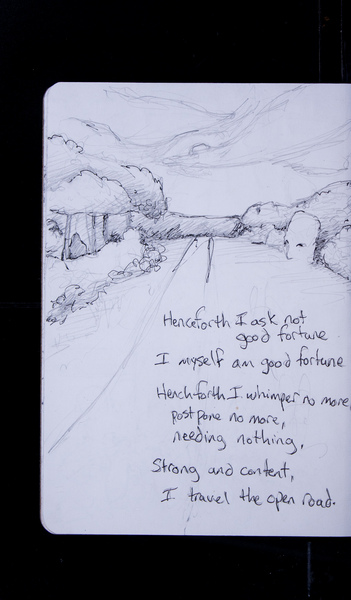 Henceforth I ask not
good fortune
I myself am good fortune
Henchforth I whimper no more,
postpone no more,
needing nothing,
Strong and content,
I travel the open road.